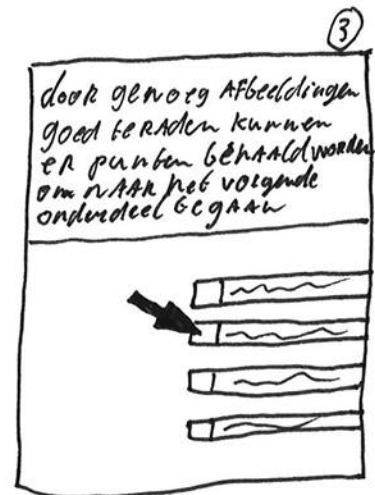 3
door genoeg Afbeeldingen
goed te RAden kunnen
eR punten behaald worden
om nAAR het volgende
onderdeel te gAAn